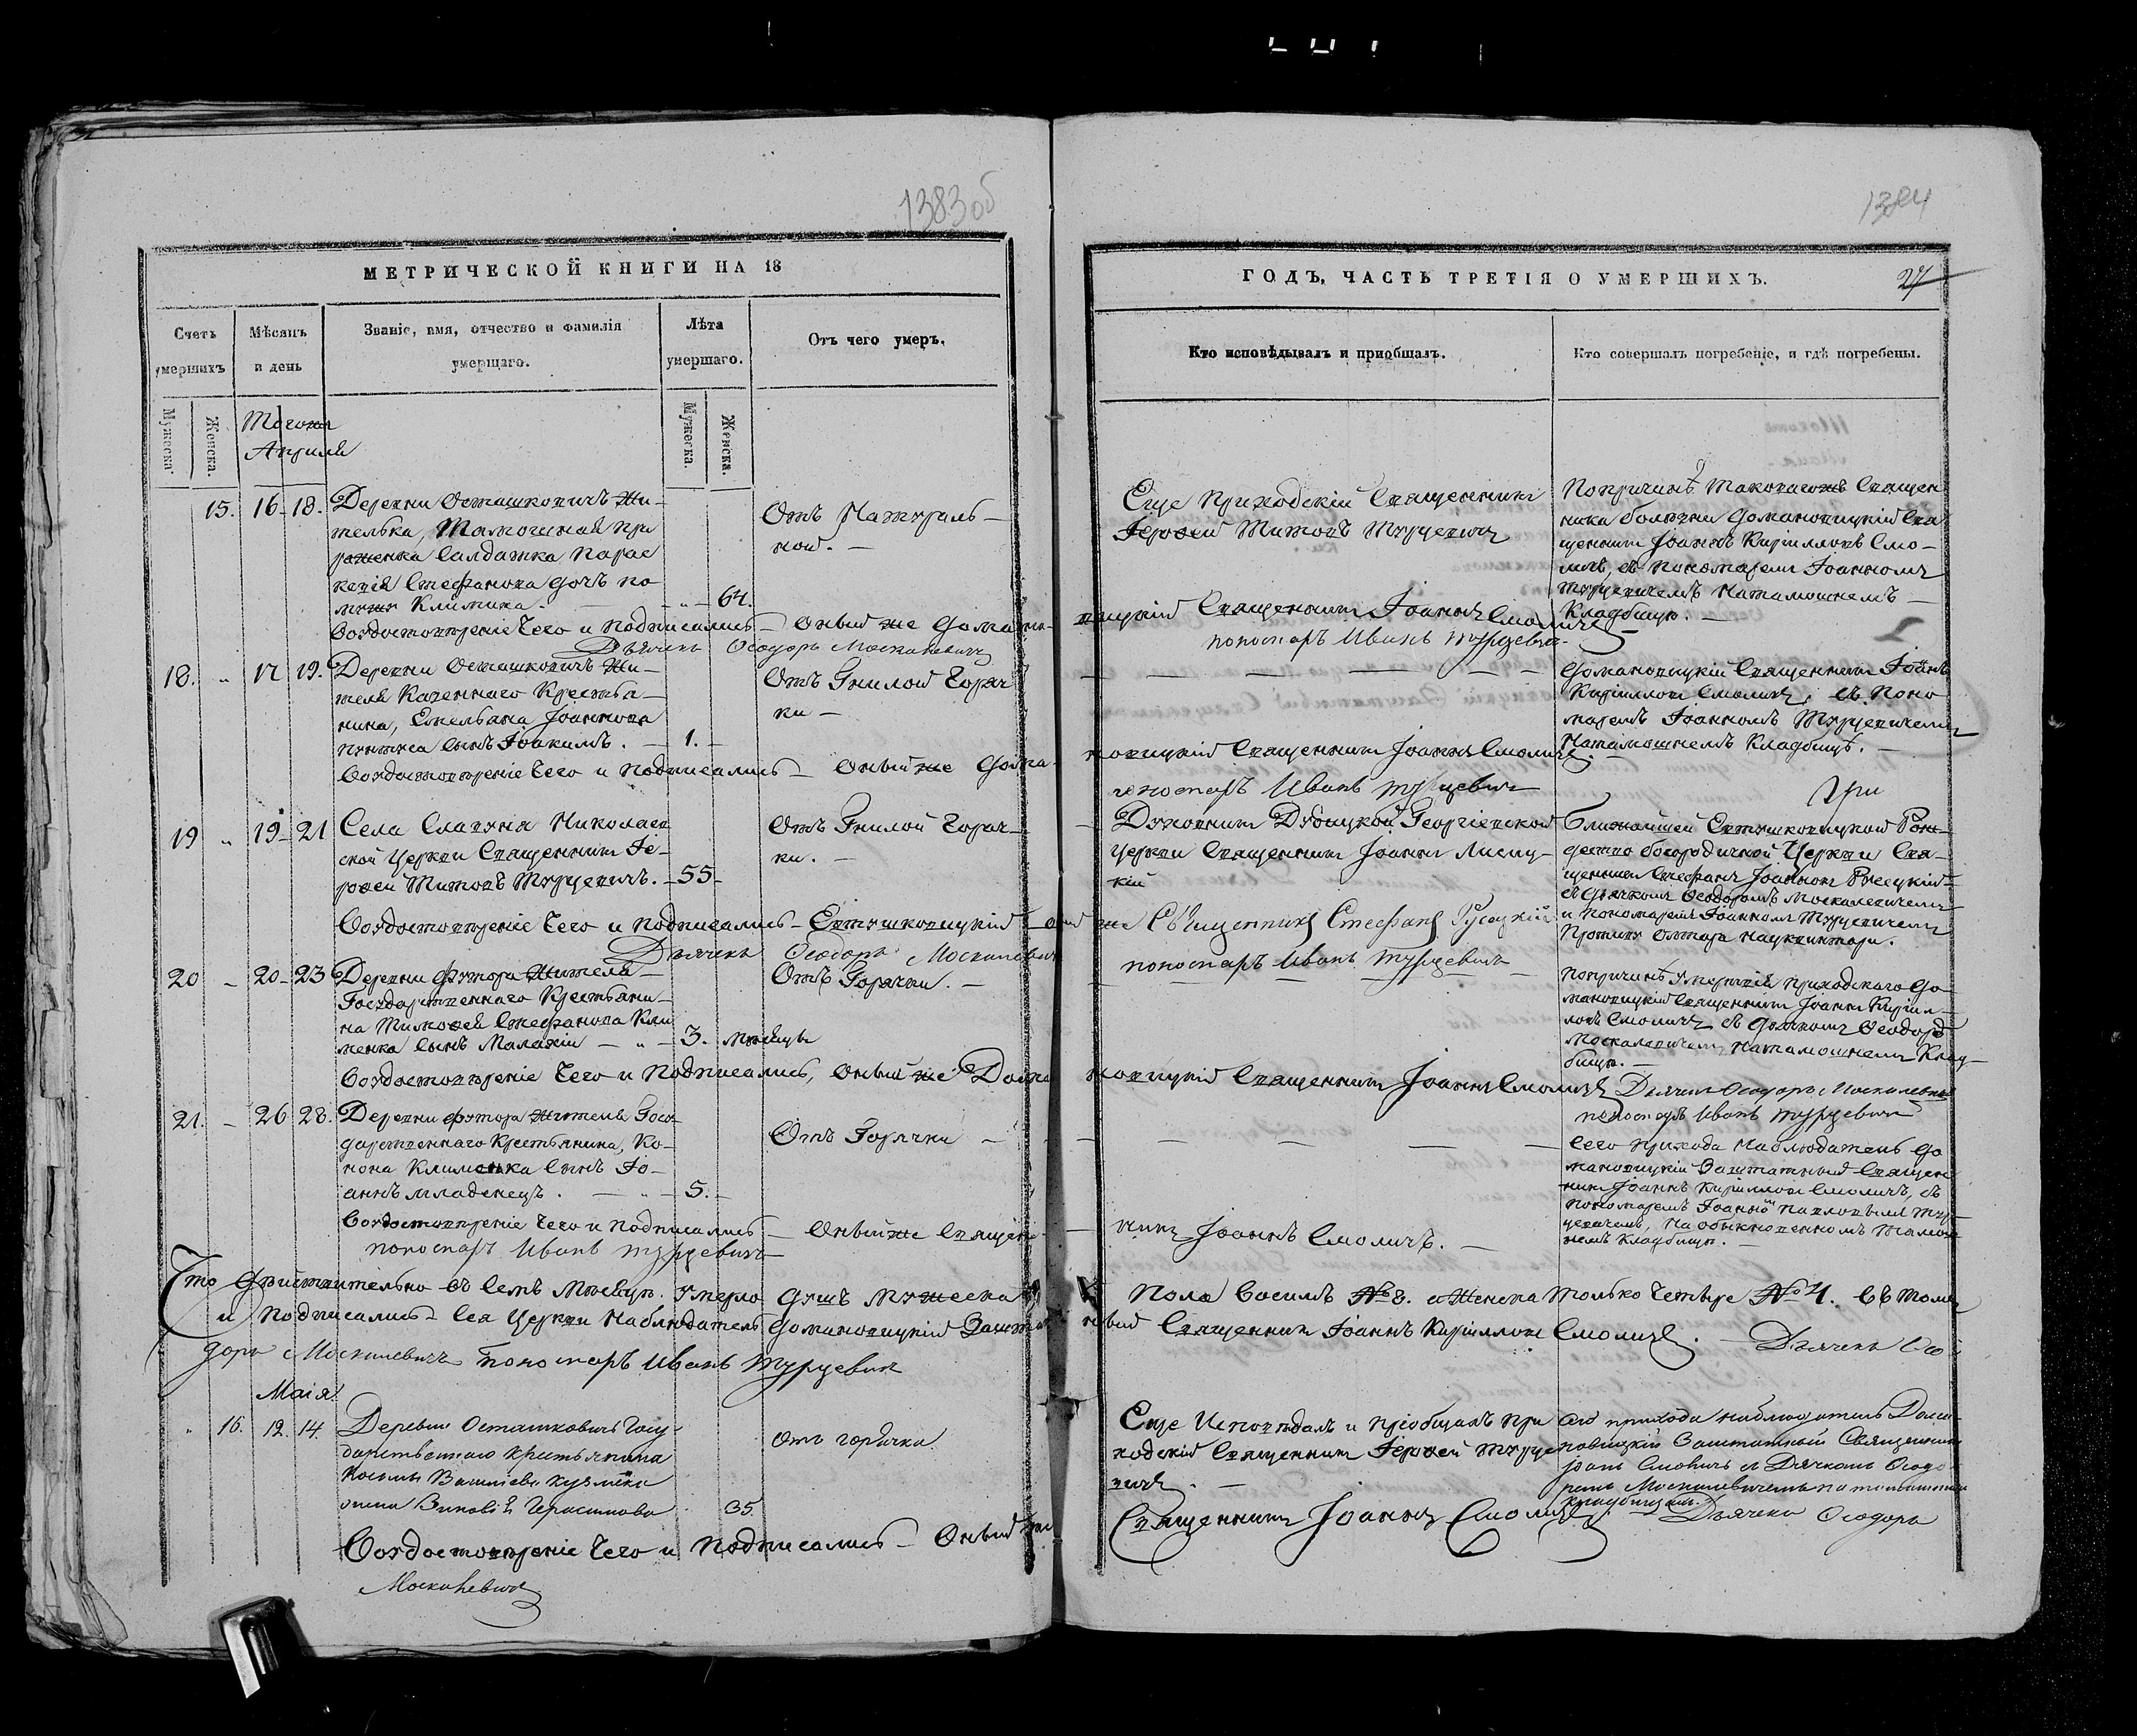 1383об
МЕТРИЧЕСКОЙ КНИГИ НА 18
Счетъ умершихъ
Мѣсяцъ и день
Званіе, имя, отчество и фамилія умершаго.
Лѣта умершаго.
Отъ чего умеръ.
Мужеска.
Женска.
Мужеска.
Женска.
Тогожъ
Апрѣля
15. 16-18. Деревни Осташковичъ Жи-
телька, Тамошная
Салдатка Парас
кевія Стефанова дочь по
Климика. 64.
Отъ Натураль-
ной.
Воудостовѣреніе Чего и подписались - Оный же Домано-
Дьячекъ Ѳеодоръ Москалевичъ
18. " 17 19. Деревни Осташковичъ Жи-
теля Казеннаго Крестья-
нина, Емельяна Іоаннова
сынъ Іоакимъ. 1.
Отъ Гнилой Горяч
ки -
Воудостовѣреніе Чего и подписались - Оный же Дома-
19 " 19-21 Села Славина Николаев
ской Церкви Священникъ Іе-
рофей Титовъ Турцевичъ. 55
Отъ Гнилой Горяч-
ки. -
Воудостовѣреніе Чего и подписались - Евтушковицкій
Дьячекъ Ѳеодоръ Москалевичъ
20 - 20-23 Деревни Футора Жителя
Государственнаго Крестьяни-
на Тимофея Стефанова Кли
менка сынъ Малахіи - " - 3. мѣсяцы
Отъ Горячки. -
Воудостовѣреніе Чего и Подписались, Оный же Дома
21. - 26 28. Деревни футора Жителя Госу-
дарственнаго Крестьянина, Ко-
нона Клименка сынъ Іо-
аннъ младенецъ. - " - 5. -
Отъ Горячки -
Воудостовѣреніе Чего и подписались - Оный же Священ-
пономарь Иванъ Турцевичъ
Что Дѣйствительно въ Семъ Мѣсяцѣ. Умерло душъ Мужеска
и подписались - Сея Церкви Наблюдатель Домановицкій Зашта
доръ Москалевичъ Пономарь Иванъ Турцевичъ
Маія
" 16. 12. 14. Деревни Осташковичъ Госу-
дарственнаго Крестьянина
Космы Василіева Кузмёка
жена Зиновія Герасимова 35.
Отъ горячки.
Воудостовѣреніе Чего и Подписались - Оный же
Москалевичъ
1384
ГОДЪ, ЧАСТЬ ТРЕТІЯ О УМЕРШИХЪ.
27
Кто исповѣдывалъ и пріобщалъ.
Кто совершалъ погребеніе, и гдѣ погребены.
Еще Приходскій Священникъ
Іерофей Титовъ Турцевичъ
Попричинѣ Таковагожъ Священ
ника болѣзни Домановицкій Свя
щенникъ Іоаннъ Кирилловъ Смо-
личъ, съ пономаремъ Іоанномъ
Турцевичемъ Натамошнемъ
Кладбищѣ. -
вицкій Священникъ Іоаннъ Смоличъ
пономарь Иванъ Турцевичъ
Домановицкій Священникъ Іоаннъ
Кирилловъ Смоличъ, съ Поно
маремъ Іоанномъ Турцевичемъ
Натамошнемъ Кладбищѣ. -
новицкій Священникъ Іоаннъ Смоличъ
пономарь Иванъ Турцевичъ
При
Духовникъ Дудицкой Георгіевской
церкви Священникъ Іоаннъ Лисиц-
кій
Ближайшей Евтушковицкой Рож-
дество богородичной Церкви Свя-
щенникъ Стефанъ Іоанновъ Русецкій
съ Дьячкомъ Ѳеодоромъ Москалевичемъ
и Пономаремъ Іоанномъ Турцевичемъ
Противъ Олтаря Нацвинтари.
же Священникъ Стефанъ Русецкій
пономарь Иванъ Турцевичъ
попричинѣ Умертвія приходскаго До-
мановицкій Священникъ Іоаннъ Кирил-
ловъ Смоличъ съ Дьячкомъ Ѳеодоръ
Москалевичемъ Натамошнемъ Клад-
бищѣ. -
новицкій Священникъ Іоаннъ Смоличъ Дьячекъ Ѳеодоръ Москалевичъ
пономарь Иванъ Турцевичъ
Сего прихода Наблюдатель До
мановицкій Заштатный Священ
никъ Іоаннъ Кирилловъ Смоличъ, съ
пономаремъ Іоанномъ Павловымъ Тур-
цевичемъ, на обыкновенномъ Тамош
немъ Кладбищѣ. -
никъ Іоаннъ Смоличъ. -
Пола Восимь №8. а Женска только Четыре №4. Въ Томъ
ный Священникъ Іоаннъ Кирилловъ Смоличъ. Дьячекъ Ѳео
Еще Исповѣдалъ и пріобщалъ при
ходскій Священникъ Іерофей Турце
вичъ. -
сего прихода наблюдатель Дома-
новицкій Заштатный Священникъ
Іоанъ Смоличъ съ Дьячкомъ Ѳеодо-
ромъ Москалевичемъ на тамошнемъ
кладбищи.
Священникъ Іоаннъ Смоличъ. Дьячекъ Ѳеодоръ